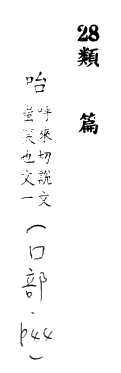 28類篇
咍
呼來切說文
蚩笑也文一
(口部·p44)